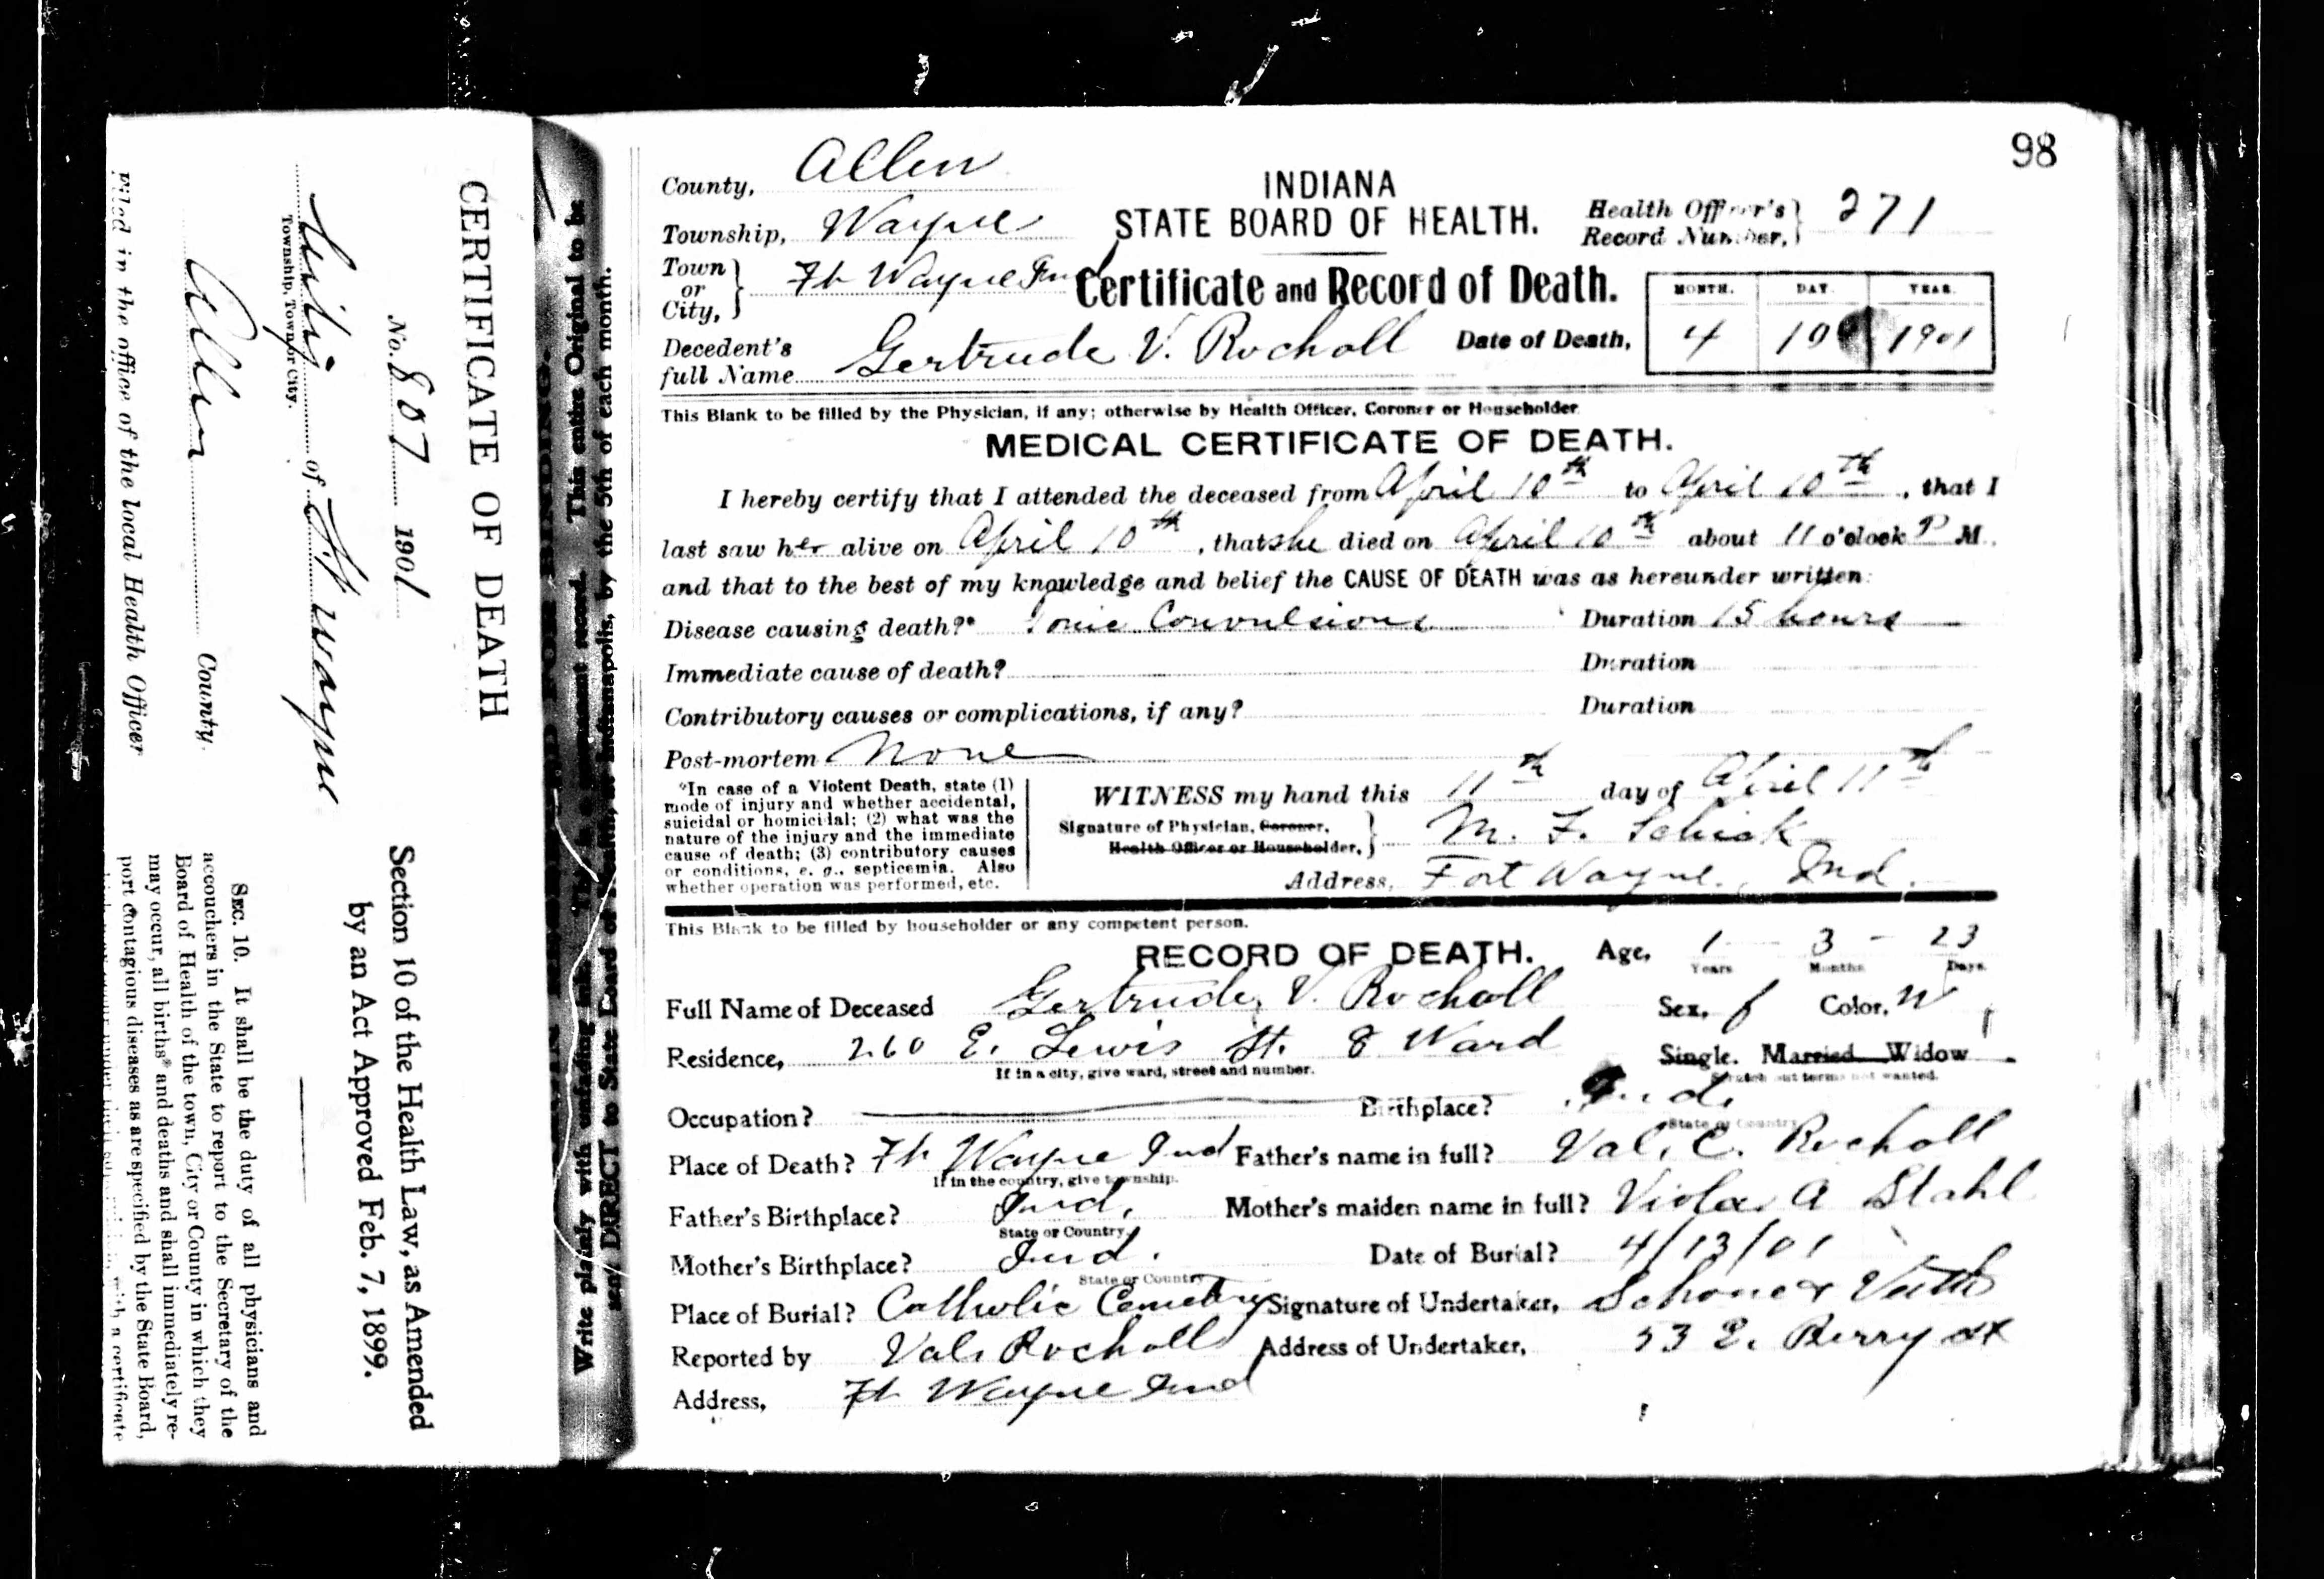 98
County, Allen
INDIANA
Township, Wayne
STATE BOARD OF HEALTH.
Health Officer's Record Number, 271
Town or City, Ft Wayne Ind
Certificate and Record of Death.
MONTH. DAY. YEAR.
Decedent's full Name Gertrude V. Rocholl
Date of Death, 4 10 1901
This Blank to be filled by the Physician, if any; otherwise by Health Officer, Coroner or Householder
MEDICAL CERTIFICATE OF DEATH.
I hereby certify that I attended the deceased from April 10th to April 10th, that I
last saw her alive on April 10th, that she died on April 10th about 11 o'clock P M.
and that to the best of my knowledge and belief the CAUSE OF DEATH was as hereunder written:
Disease causing death?* Tonic Convulsions Duration 15 hours
Immediate cause of death? Duration
Contributory causes or complications, if any? Duration
Post-mortem None
*In case of a Violent Death, state (1)
mode of injury and whether accidental,
suicidal or homicidal; (2) what was the
nature of the injury and the immediate
cause of death; (3) contributory causes
or conditions, e. g., septicemia. Also
whether operation was performed, etc.
WITNESS my hand this 11th day of April 11th
Signature of Physician, Coroner, Health Officer or Householder, M. F. Schick
Address, Fort Wayne, Ind.
This Blank to be filled by householder or any competent person.
RECORD OF DEATH. Age, 1 - 3 - 23
Years Months Days.
Full Name of Deceased Gertrude V. Rocholl Sex, f Color, W
Residence, 260 E. Lewis St. 8 Ward Single. Married. Widow
If in a city, give ward, street and number. Scratch out terms not wanted.
Occupation? Birthplace? Ind.
State or Country
Place of Death? Ft Wayne Ind Father's name in full? Val. C. Rocholl
If in the country, give township.
Father's Birthplace? Ind. Mother's maiden name in full? Viola A Stahl
State or Country
Mother's Birthplace? Ind. Date of Burial? 4/13/01
State or Country
Place of Burial? Catholic Cemetery Signature of Undertaker, Schone & Veith
Reported by Val. Rocholl Address of Undertaker, 53 E. Berry St
Address, Ft Wayne Ind
Write plainly with unfading ink. This
This entire Original to be
DIRECT to State Board of Health, at Indianapolis, by the 5th of each month.
CERTIFICATE OF DEATH
No. 807 1901
City of Ft Wayne
Township, Town or City.
Allen County.
Filed in the office of the local Health Officer
Section 10 of the Health Law, as Amended
by an Act Approved Feb. 7, 1899.
SEC. 10. It shall be the duty of all physicians and
accouchers in the State to report to the Secretary of the
Board of Health of the town, City or County in which they
may occur, all births and deaths and shall immediately re-
port contagious diseases as are specified by the State Board,
with a certificate